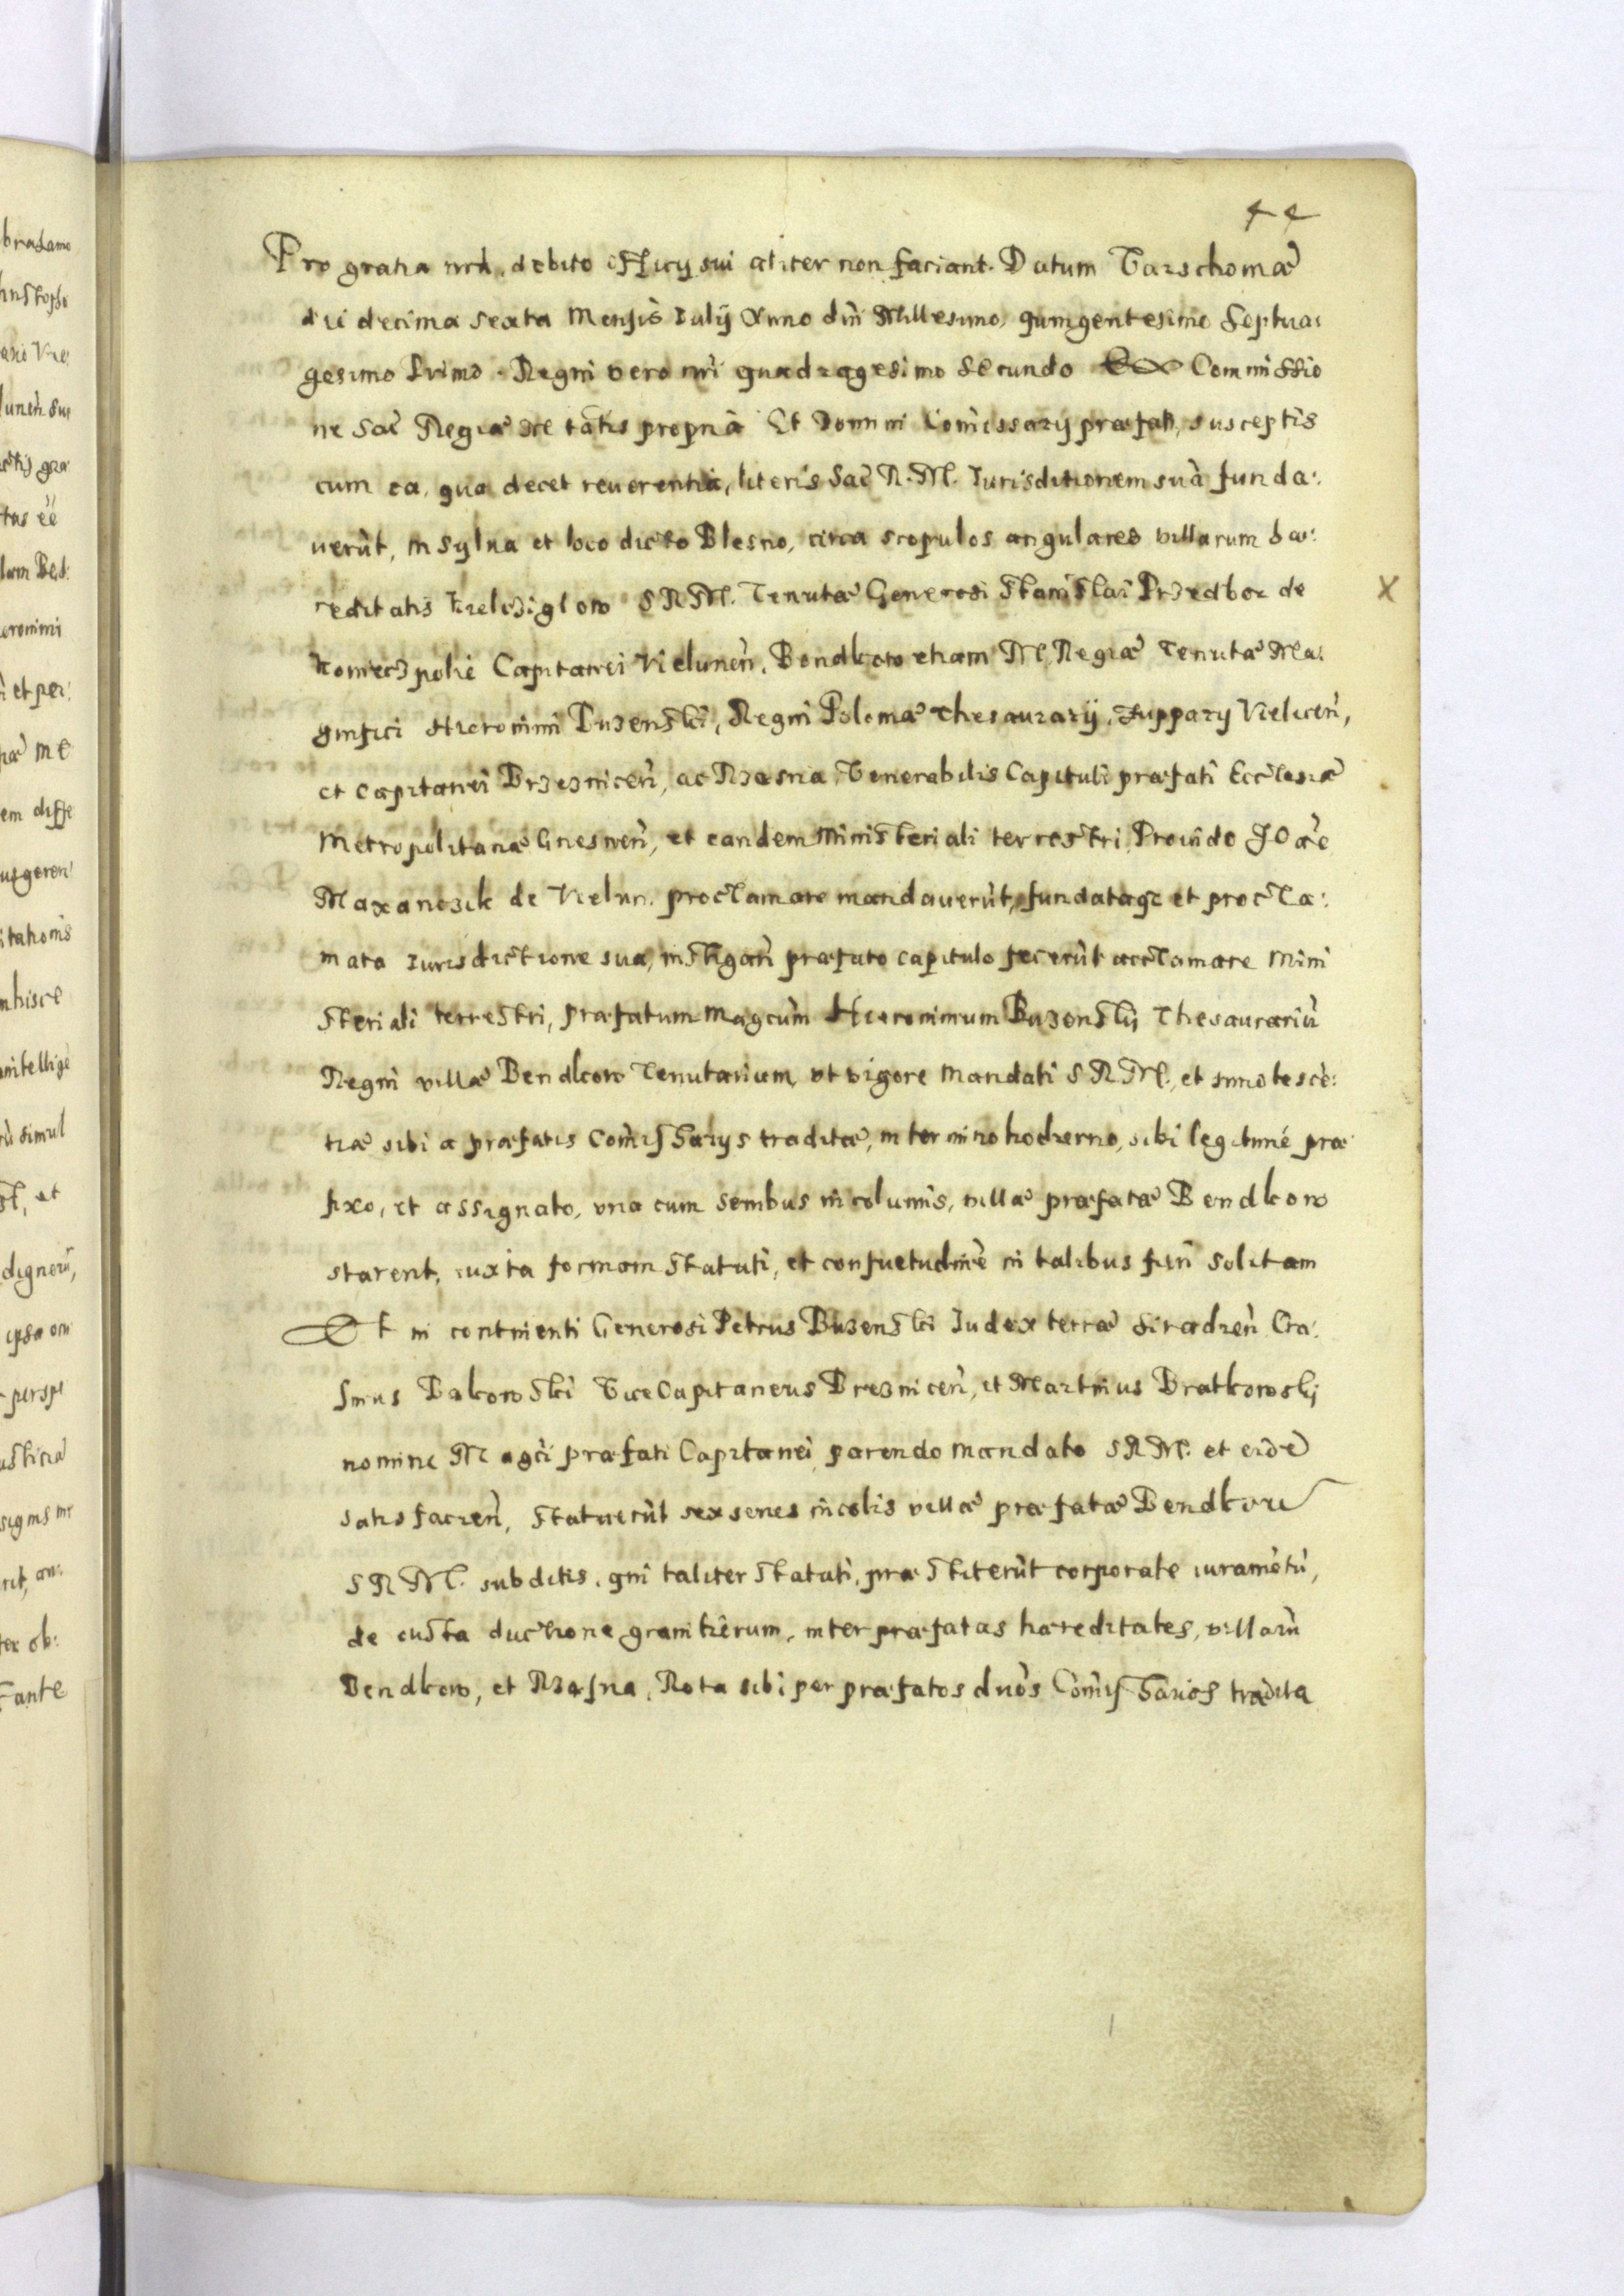 44
Pro gratia nrã, debito officij sui aliter non faciant. Datum Varschoviæ
dii decima sexta Mensis Iulij Anno dñi Millesimo, quingentesimo Septua:
gesimo Primo. Regni vero nrĩ quadragesimo secundo Ex Commissio
ne Sac̃ Regiæ Me tãtis propria Et Domini Com̃issarij præfati, susceptis
cum ea, qua decet reuerentia, literis Sac̃ R. M. Iurisditionem suã funda:
uerũt, in sylua et loco dicto Blesno, circa scopulos angulares villarum hæ:
reditatis Kielczigłow S R M. Tenutæ Generosi Stanislai Przedbor de
Koniecz polie Capitanei Vielunen̄, Bendkow etiam M. Regiæ Tenutæ Ma:
gnifici Hieronimi Buzenski, Regni Poloniæ Thesaurarij, Zupparij Vielicen̄,
et Capitanei Brzeznicen̄, ac Rzasna, Venerabilis Capituli præfati Ecclesiæ
Metropolitanæ Gnesnen̄, et eandem Ministeriali terrestri Prouido JOãe
Maxanczik de Vielun. proclamare mandauerũt, fundataqz et procla:
mata Iurisdictione sua, instigan̄ præfato capitulo fecerũt acclamare Mini
steriali terrestri, præfatum Magcũm Hieronimum Buzenskij Thesaurariũ
Regni villæ Bendkow Tenutarium, vt vigore Mandati S R M., et innotescẽ:
tiæ sibi a præfatis Com̃issarijs traditæ, in termino hodierno, sibi legitimé præ
fixo, et assignato, vna cum senibus incolumis, villæ præfatæ Bendkow
starent, iuxta formam Statuti, et consuetudinẽ in talibus fieri solitam
Et in continenti Generosi Petrus Buzenski Iudex terræ Siradien̄ Era:
smus Bakowski Vice Capitaneus Breznicen̄, et Martinus Bratkowskj
nomine Magci præfati Capitanei parendo mandato S R M. et eidẽ
satisfacien̄, statuerũt sex senes incolis villæ præfatæ Bendkow
S R M. subditis, qui taliter statuti, præstiterũt corporale iuramẽtũ,
de iusta ductione granitierum, inter præfatas hæreditates, villarũ
Bendkow, et Rzasna, Rota sibi per præfatos dnõs Com̃issarios tradita
X